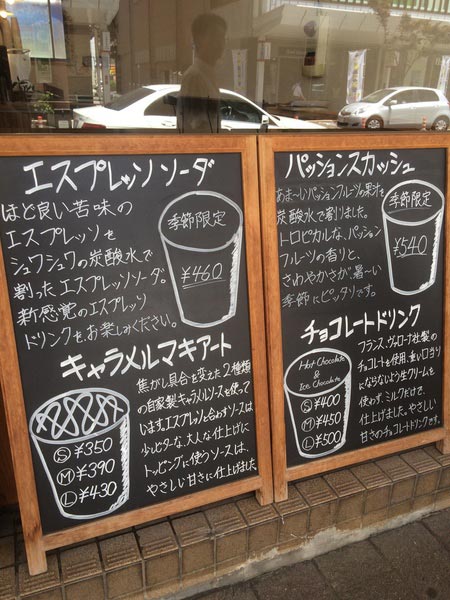 エスプレッソソーダ
ほど良い苦味の
エスプレッソを
シュワシュワの炭酸水で
割ったエスプレッソソーダ。
新感覚のエスプレッソ
ドリンクを、お楽しみください。
季節限定
¥460
キャラメルマキアート
焦がし具合を変えた2種類
の自家製キャラメルソースを使って
います。エスプレッソと合わすソースは
少しビターな、大人な仕上げに
トッピングに使うソースは、
やさしい甘さに仕上げました
Ⓢ ¥350
Ⓜ ¥390
Ⓛ ¥430
パッションスカッシュ
あま～いパッションフルーツの果汁を
炭酸水で割りました。
トロピカルな、パッション
フルーツの香りと、
さわやかさが、暑～い
季節にピッタリです。
季節限定
¥540
チョコレートドリンク
フランス、ヴァローナ社製の
チョコレートを使用、重い口当り
にならないよう生クリームを
使わず、ミルクだけで、
仕上げました。やさしい
甘さのチョコレートドリンクです。
Hot Chocolate
&
Ice Chocolate
Ⓢ ¥400
Ⓜ ¥450
Ⓛ ¥500